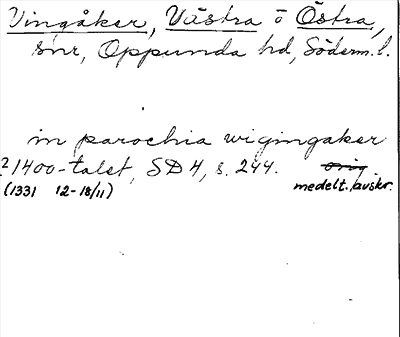 Vingåker, Västra o Östra,
snr, Oppunda hd, Söderm. l.
in parochia wigingaker
? 1400-talet, SD 4, s. 244. orig.
(1331 12-18/11) medelt. avskr.